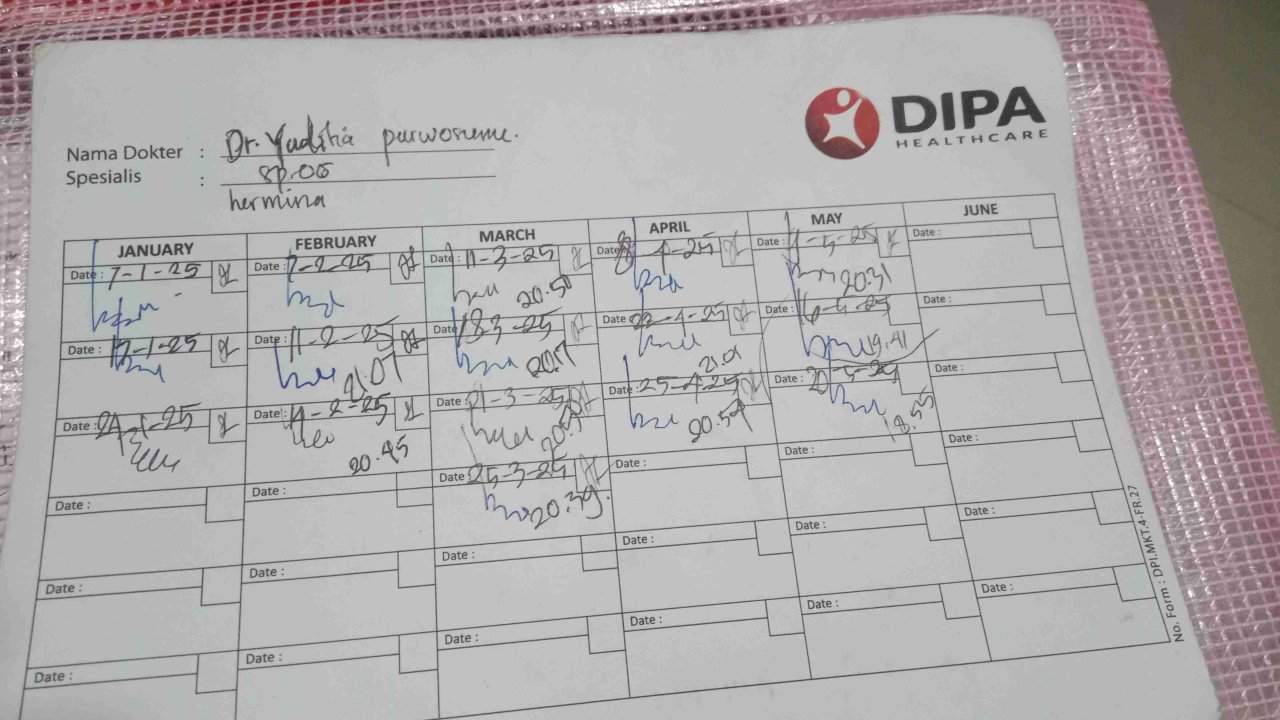 DIPA
HEALTHCARE
Nama Dokter : Dr. Yuditia purwosunu.
Spesialis : SP.OG
hermina
JANUARY FEBRUARY MARCH APRIL MAY JUNE
Date : 7-1-25 Date : 7-2-25 Date 11-3-25 Date 8-4-25 Date : Date :
20.50 20.31
Date : 17-1-25 Date : 11-2-25 Date 183-25 Date : 22-4-25 Date : Date :
21.07 20.17 21.01 19.41
Date : 24-1-25 Date : 14-2-25 Date : 21-3-25 Date : 25-4-25 Date : 20-5-25 Date :
20.45 20.54 18.55
Date : Date : Date : 25-3-25 Date : Date : Date :
20.39.
Date : Date : Date : Date : Date : Date :
Date : Date : Date : Date : Date : Date :
No. Form : DPI.MKT.4-FR.27